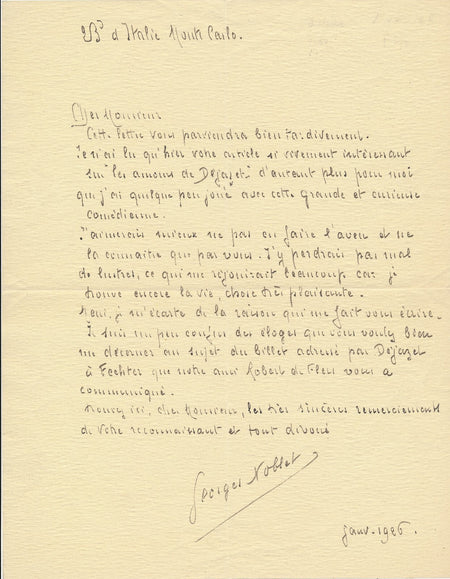 2 Bd d'Italie Monte Carlo.
Cher Monsieur
Cette lettre vous parviendra bien tardivement.
Je n'ai lu qu'hier votre article si vivement intéressant
sur les amours de Dejazet: d'autant plus pour moi
que j'ai quelque peu joué avec cette grande et curieuse
comédienne.
J'aimerais mieux ne pas en faire l'aveu et ne
la connaitre que par vous. J'y perdrais pas mal
de lustres, ce qui me réjouirait beaucoup car je
trouve encore la vie, chose très plaisante.
Mais, je m'écarte de la raison qui me fait vous écrire.
Je suis un peu confus des éloges que vous voulez bien
me décerner au sujet du billet adressé par Dejazet
à Fechter que notre ami Robert de Flers vous a
communiqué.
ici, cher Monsieur, les très sincères remerciements
de votre reconnaissant et tout dévoué
Georges Noblet
Janv. 1926.